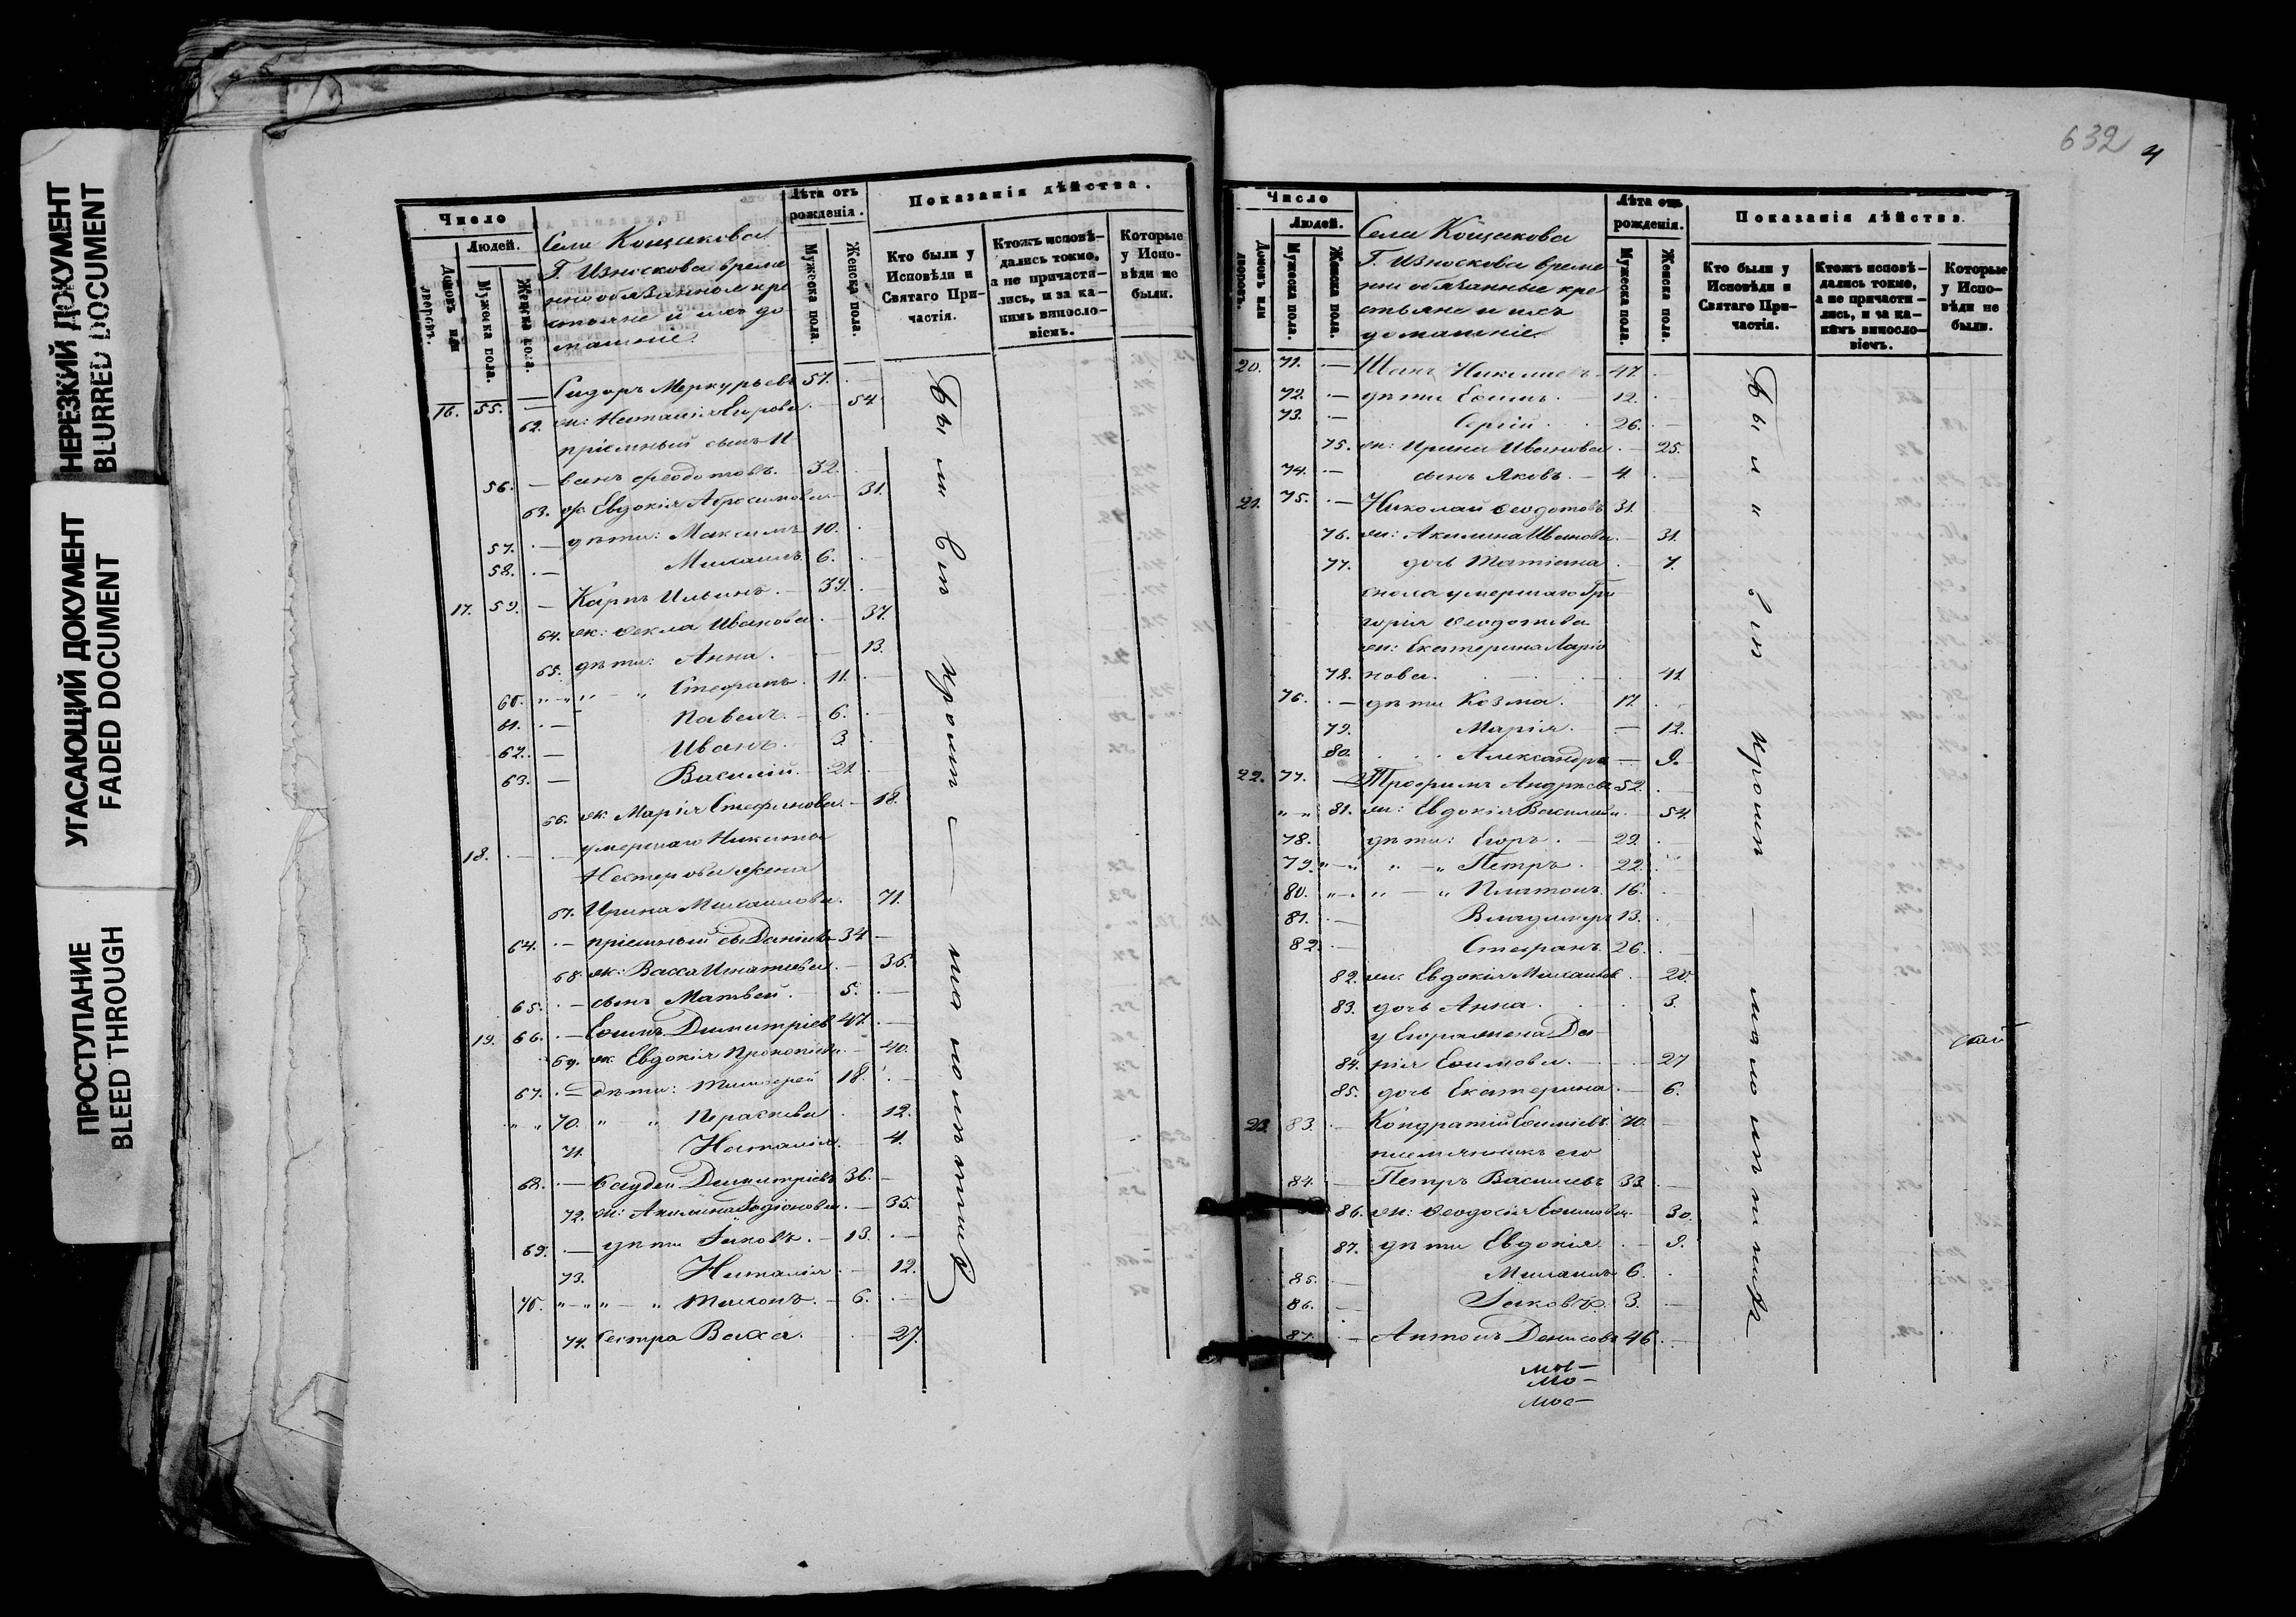 НЕРЕЗКИЙ ДОКУМЕНТ
BLURRED DOCUMENT
УГАСАЮЩИЙ ДОКУМЕНТ
FADED DOCUMENT
ПРОСТУПАНИЕ
BLEED THROUGH
Число
Людей.
Домовъ или дворовъ.
Мужеска пола.
Женска пола.
Села Кощакова
Г. Износкова време
нно обязанные кре
стьяне и ихъ до
машніе.
Лѣта отъ рожденія.
Мужеска пола.
Женска пола.
Показанія дѣйства.
Кто были у Исповѣди и Святаго Причастія.
Ктожъ исповѣдались токмо, а не причастились, и за какимъ винословіемъ.
Которые у Исповѣди не были.
16. 55. — Сидоръ Меркурьевъ 57. —
62. ж: Наталія Егорова — 54.
пріемный сынъ И
56. — ванъ Феодотовъ. 32. —
63. ж: Евдокія Абросимова — 31.
57. — дѣти: Максимъ 10.
58. — Михаилъ 6.
17. 59. — Карпъ Ильинъ. — 39.
64. ж: Ѳекла Иванова — 37.
65. дѣти: Анна. — 13.
60. „ — „ „ — „ Стефанъ. 11. —
61. — Павелъ. — 6. —
62. — Иванъ. 3.
63. — Василій. 21. —
66. ж: Марія Стефанова — 18.
18. — умершаго Никиты
Нестерова жена
67. Ирина Михаилова. 71.
64. — пріемный сы Даніилъ 34 —
68. ж: Васса Игнатьева — 36.
65. — сынъ Матвей. 5. —
19. 66. — Еѳимъ Димитріевъ 47. —
69. ж: Евдокія Прокопіева — 40.
67. — дѣти: Тимоѳей 18. —
„ „ 70. „ „ Параскева 12.
71. Наталія. 4.
68. — Ѳаддей Димитріевъ 36. —
72. ж: Акилина Родіонова — 35.
69. — дѣти Іаковъ. — 13. —
73. Наталія — 12.
70. „ — „ „ — „ Тихонъ. — 6. —
74. сестра Васса. — 27.
Были въ кромѣ — малолѣтних
632 4
Число
Людей.
Домовъ или дворовъ.
Мужеска пола.
Женска пола.
Села Кощакова
Г. Износкова време
нно обязанные кре
стьяне и ихъ
домашніе.
Лѣта отъ рожденія.
Мужеска пола.
Женска пола.
Показанія дѣйства.
Кто были у Исповѣди и Святаго Причастія.
Ктожъ исповѣдались токмо, а не причастились, и за какимъ винословіемъ.
Которые у Исповѣди не были.
20. 71. — Николаевъ 47. —
72. — дѣти Еѳимъ. 12. —
73. — Сергій. 26. —
75. ж: Ирина Иванова — 25.
74. — сынъ Яковъ. — 4. —
21. 75. — Николай Ѳеодотовъ 31.
76. ж: Акилина Иванова — 31.
77. дочь Татіана 7.
сноха умершаго Гри
горія Ѳеодотова
ж: Екатерина Ларіо
78. нова. 41.
76. — дѣти Козма. 17.
79. Марія. — 12.
80. Александра — 9.
22. 77. — Трофимъ Андреевъ 52.
„ „ 81. ж: Евдокія Васильева — 54.
78. дѣти: Егоръ. — 29.
79. „ — „ „ — „ Петръ. 22.
80. „ — „ „ — „ Платонъ. 16.
81. — Владимиръ 13.
82. — Стефанъ. 26. —
82. ж: Евдокія Михаилов — 20.
83. дочь Анна. 3.
у Егора жена Да
84. рія Еѳимова. — 27
85. дочь Екатерина — 6.
23. 83. — Кондратій Еѳиміевъ 70.
племянникъ его
84. — Петръ Васильевъ 33. —
86. ж: Ѳеодосія Еѳимова — 30.
87. дѣти Евдокія. — 9.
85. — Михаилъ 6.
86. — Іаковъ. 3. —
87. — Антонъ Денисовъ 46. —
Были въ кромѣ — малолѣтнихъ